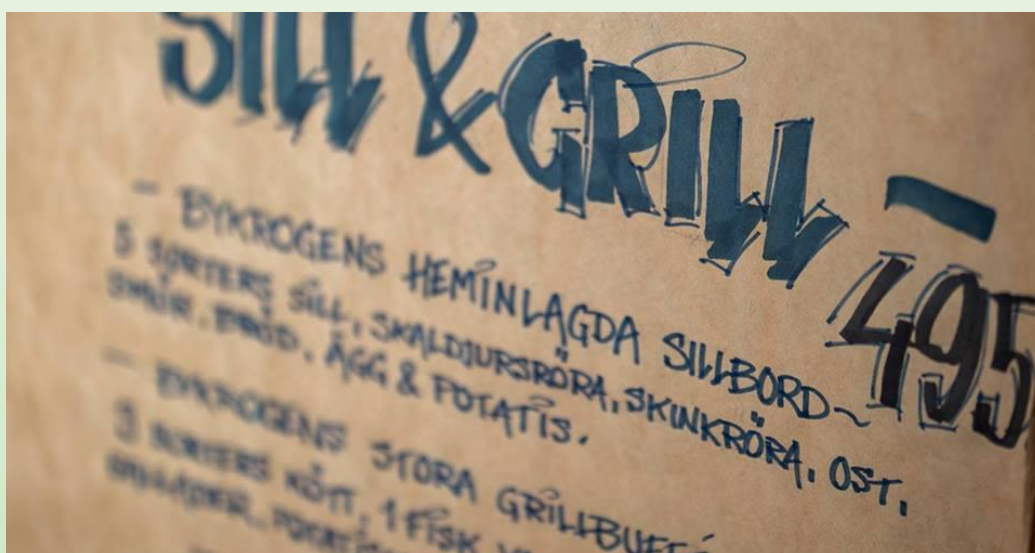 SILL & GRILL – 495
– BYKROGENS HEMINLAGDA SILLBORD ~
5 SORTERS SILL, SKALDJURSRÖRA, SKINKRÖRA, OST,
SMÖR, BRÖD, ÄGG & POTATIS.
– BYKROGENS STORA GRILLBUFFÉ
3 SORTERS KÖTT, 1 FISK